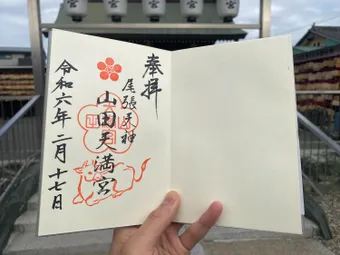 奉拝
尾張天神
山田天満宮
令和六年二月十七日